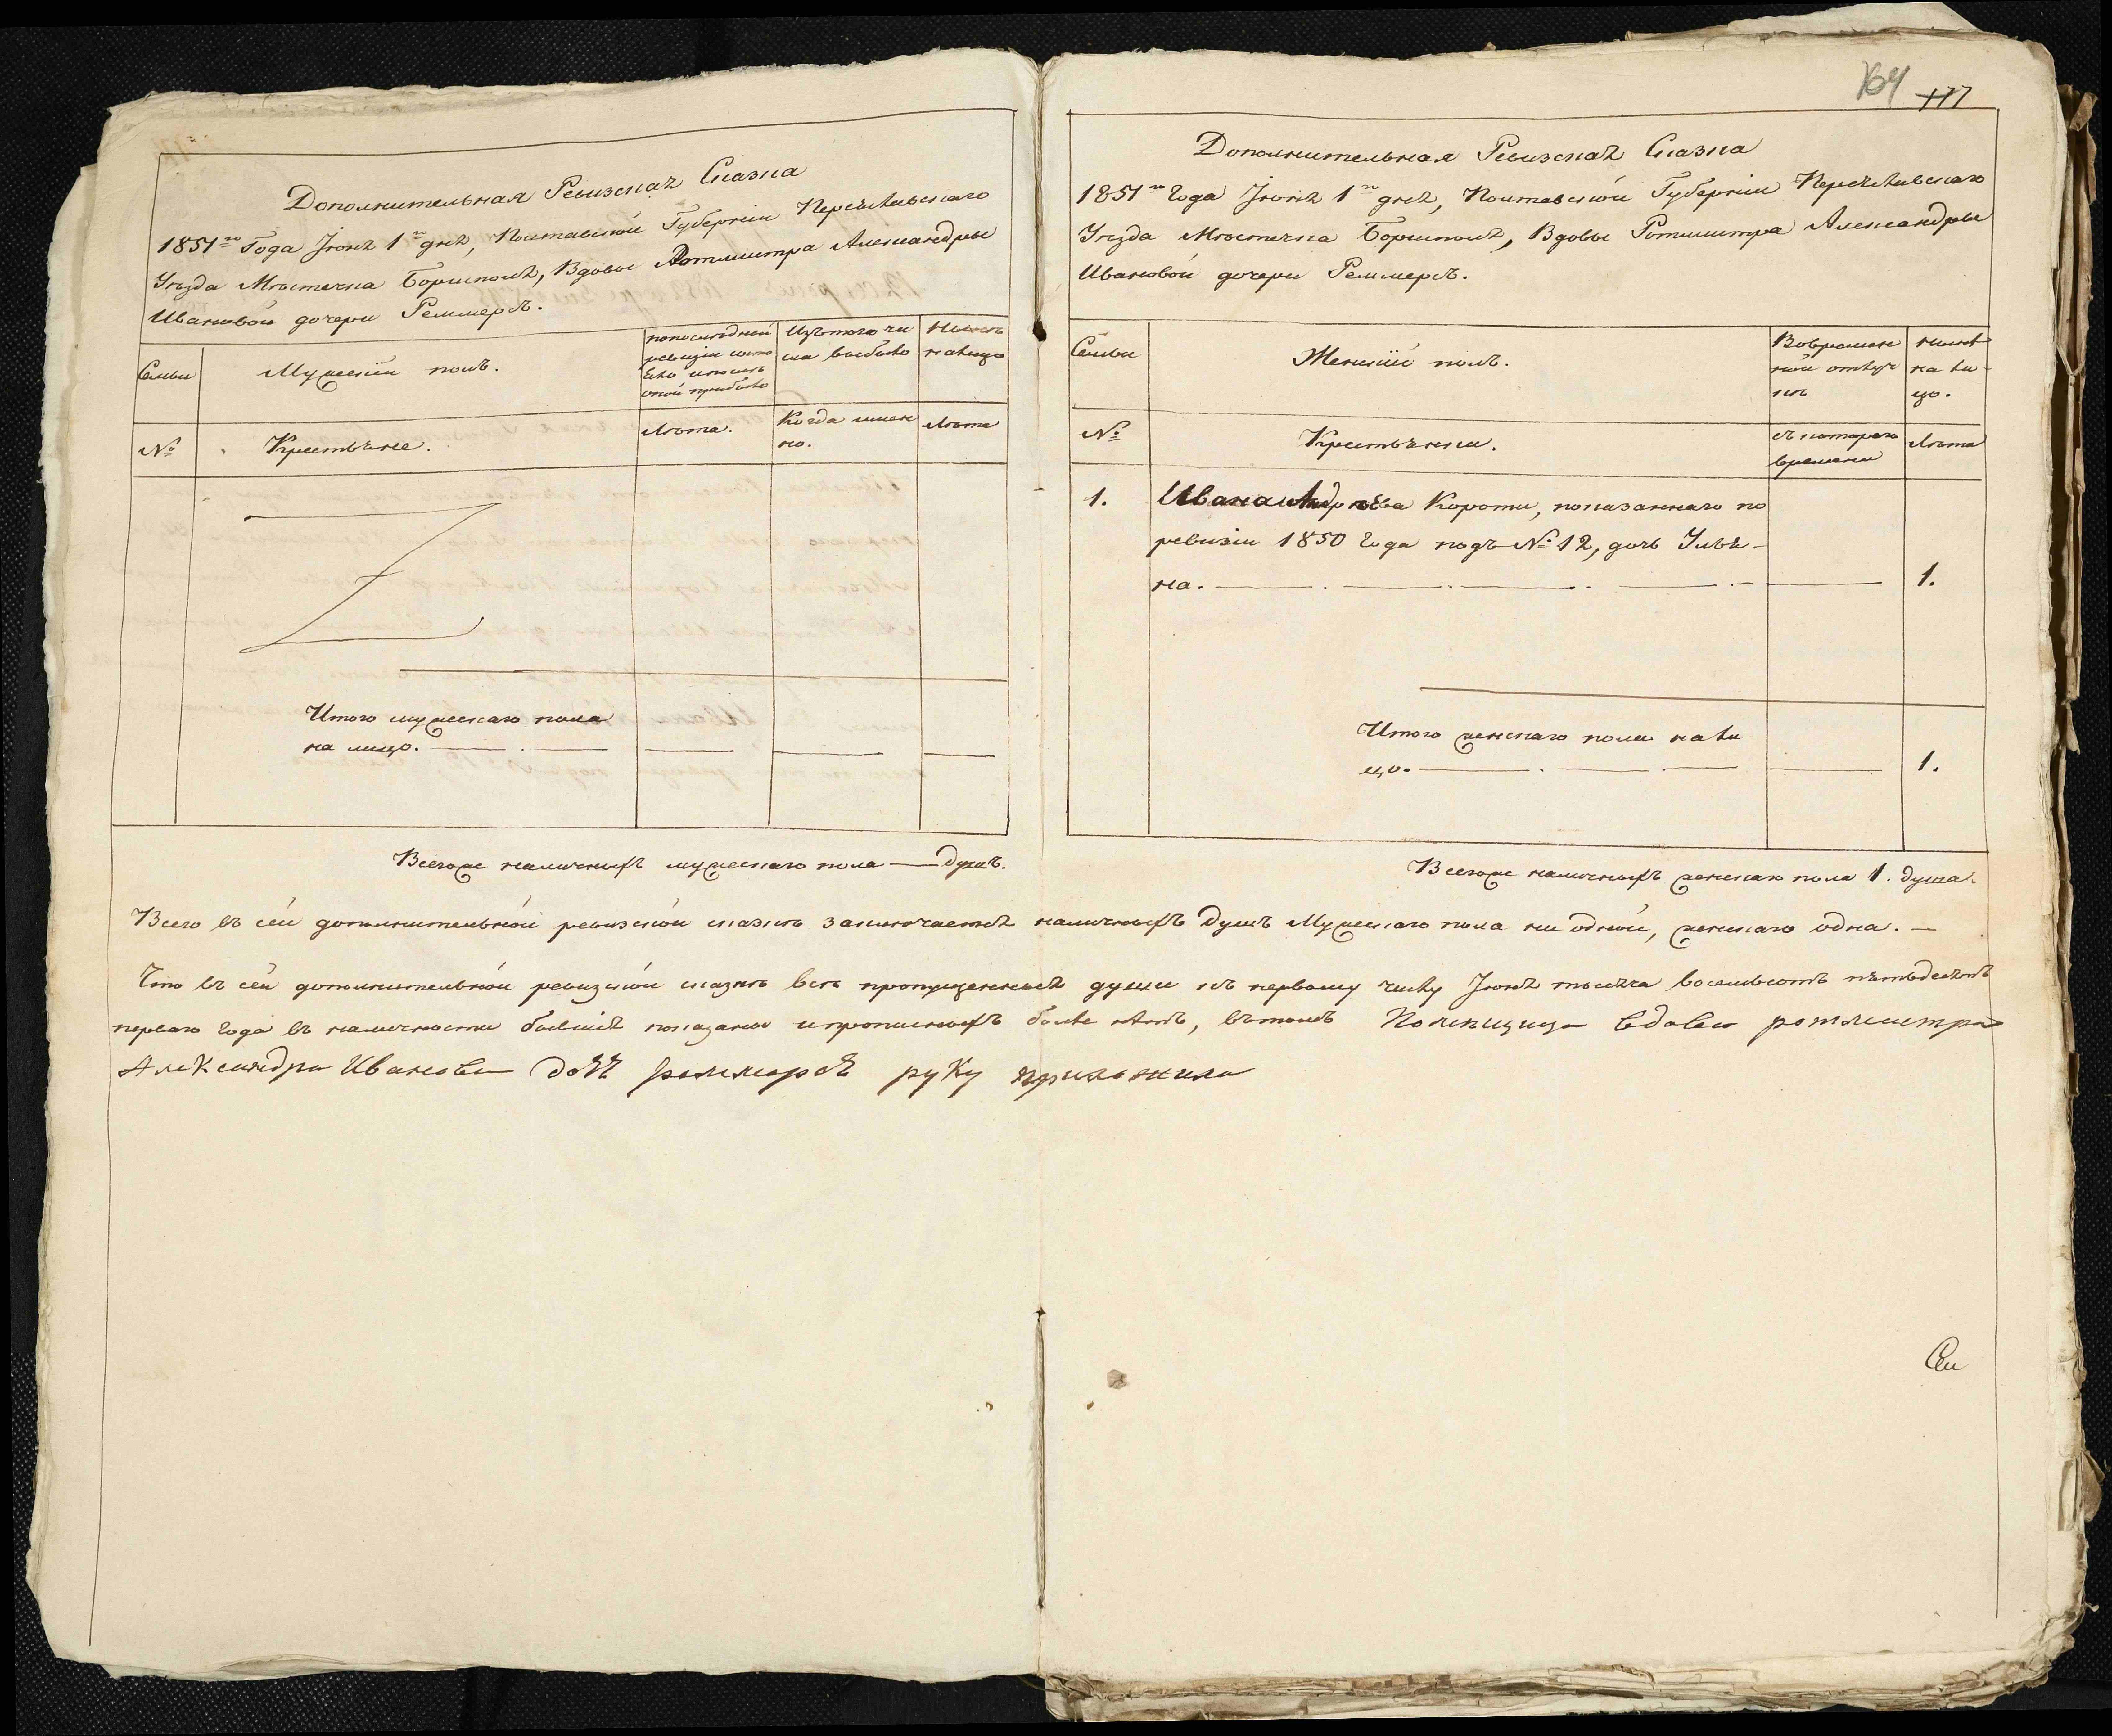 Дополнительная Ревизская Сказка
1851го Года Іюня 1го дня, Полтавской Губерніи Переяславскаго
Уѣзда Мѣстечка Борисполя, Вдовы Ротмистра Александры
Ивановой дочери Реммерсъ.
Семьи
Мужескій полъ.
по последней ревизіи состояло и после оной прибыло
Изъ того числа выбыло
Ныне на лицо
№
Крестьяне.
Лѣта.
Когда именно.
Лѣта
Итого мужескаго пола
на лицо.
Всего же наличныхъ мужескаго пола — душъ.
164 177
Дополнительная Ревизская Сказка
1851го Года Іюня 1го дня, Полтавской Губерніи Переяславскаго
Уѣзда Мѣстечка Борисполя, Вдовы Ротмистра Александры
Ивановой дочери Реммерсъ.
Семьи
Женскій полъ.
Во временной отлучкѣ
Ныне на лицо.
№
Крестьянки.
съ котораго времени
Лѣта
1. Ивана Андреева Коротки, показаннаго по
ревизіи 1850 Года подъ № 12, дочь Улья-
на. 1.
Итого женскаго пола на ли
цо. 1.
Всего же наличныхъ женскаго пола 1. душа.
Всего въ сей дополнительной ревизской сказкѣ заключается наличныхъ душъ Мужескаго пола ни одной, женскаго одна. —
Что въ сей дополнительной ревизской сказкѣ всѣ пропущенныя души къ первому числу Іюня тысяча восемьсотъ пятьдесятъ
перваго Года въ наличности бывшія показаны и прописныхъ болѣе нѣтъ, въ томъ Помещица вдова ротмистра
Александра Иванова дочь реммерсъ руку приложила
Сіи